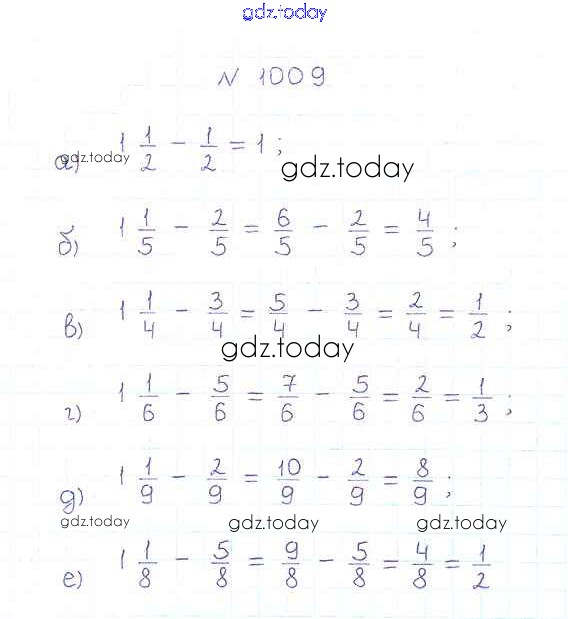 gdz.today
N 1009
а) 1 1/2 - 1/2 = 1 ;
gdz.today gdz.today
б) 1 1/5 - 2/5 = 6/5 - 2/5 = 4/5 ;
в) 1 1/4 - 3/4 = 5/4 - 3/4 = 2/4 = 1/2 ;
gdz.today
г) 1 1/6 - 5/6 = 7/6 - 5/6 = 2/6 = 1/3 ;
д) 1 1/9 - 2/9 = 10/9 - 2/9 = 8/9 ;
gdz.today gdz.today gdz.today
е) 1 1/8 - 5/8 = 9/8 - 5/8 = 4/8 = 1/2